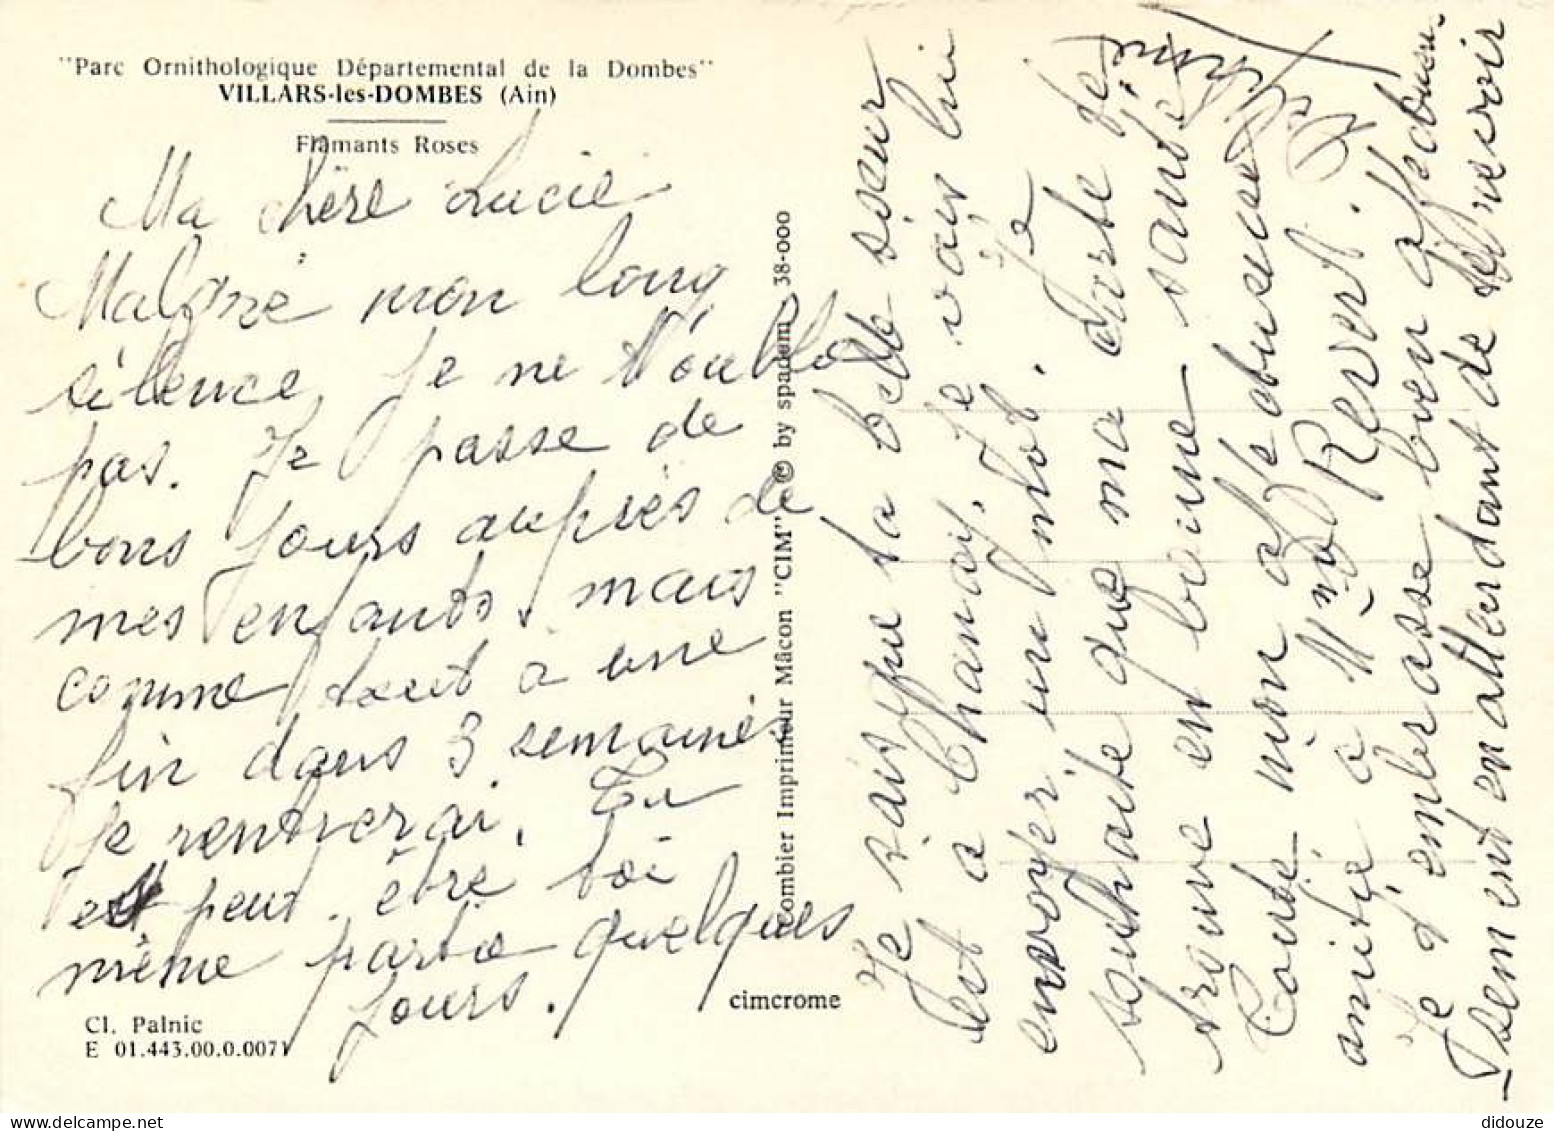 "Parc Ornithologique Départemental de la Dombes"
VILLARS-les-DOMBES (Ain)
Flamants Roses
Ma chère Lucie
Malgré mon long
silence je ne t'oublie
pas. Je passe de
bons jours auprès de
mes enfants mais
comme tout a une
fin dans 3 semaines
je rentrerai. Tu
es peut être toi
même partie quelques
jours.
Cl. Palnic
E 01.443.00.0.0071
cimcrome
Combier Imprimeur Mâcon "CIM" © by spadem 38-000
Je sais que ta belle sœur
est à Chanay, je vais lui
envoyer un mot. Je
souhaite que ma carte te
trouve en bonne santé
Toute mon affectueuse
amitié à Mme Revert.
Je t'embrasse bien affectueu-
sement en attendant de te revoir
didouze